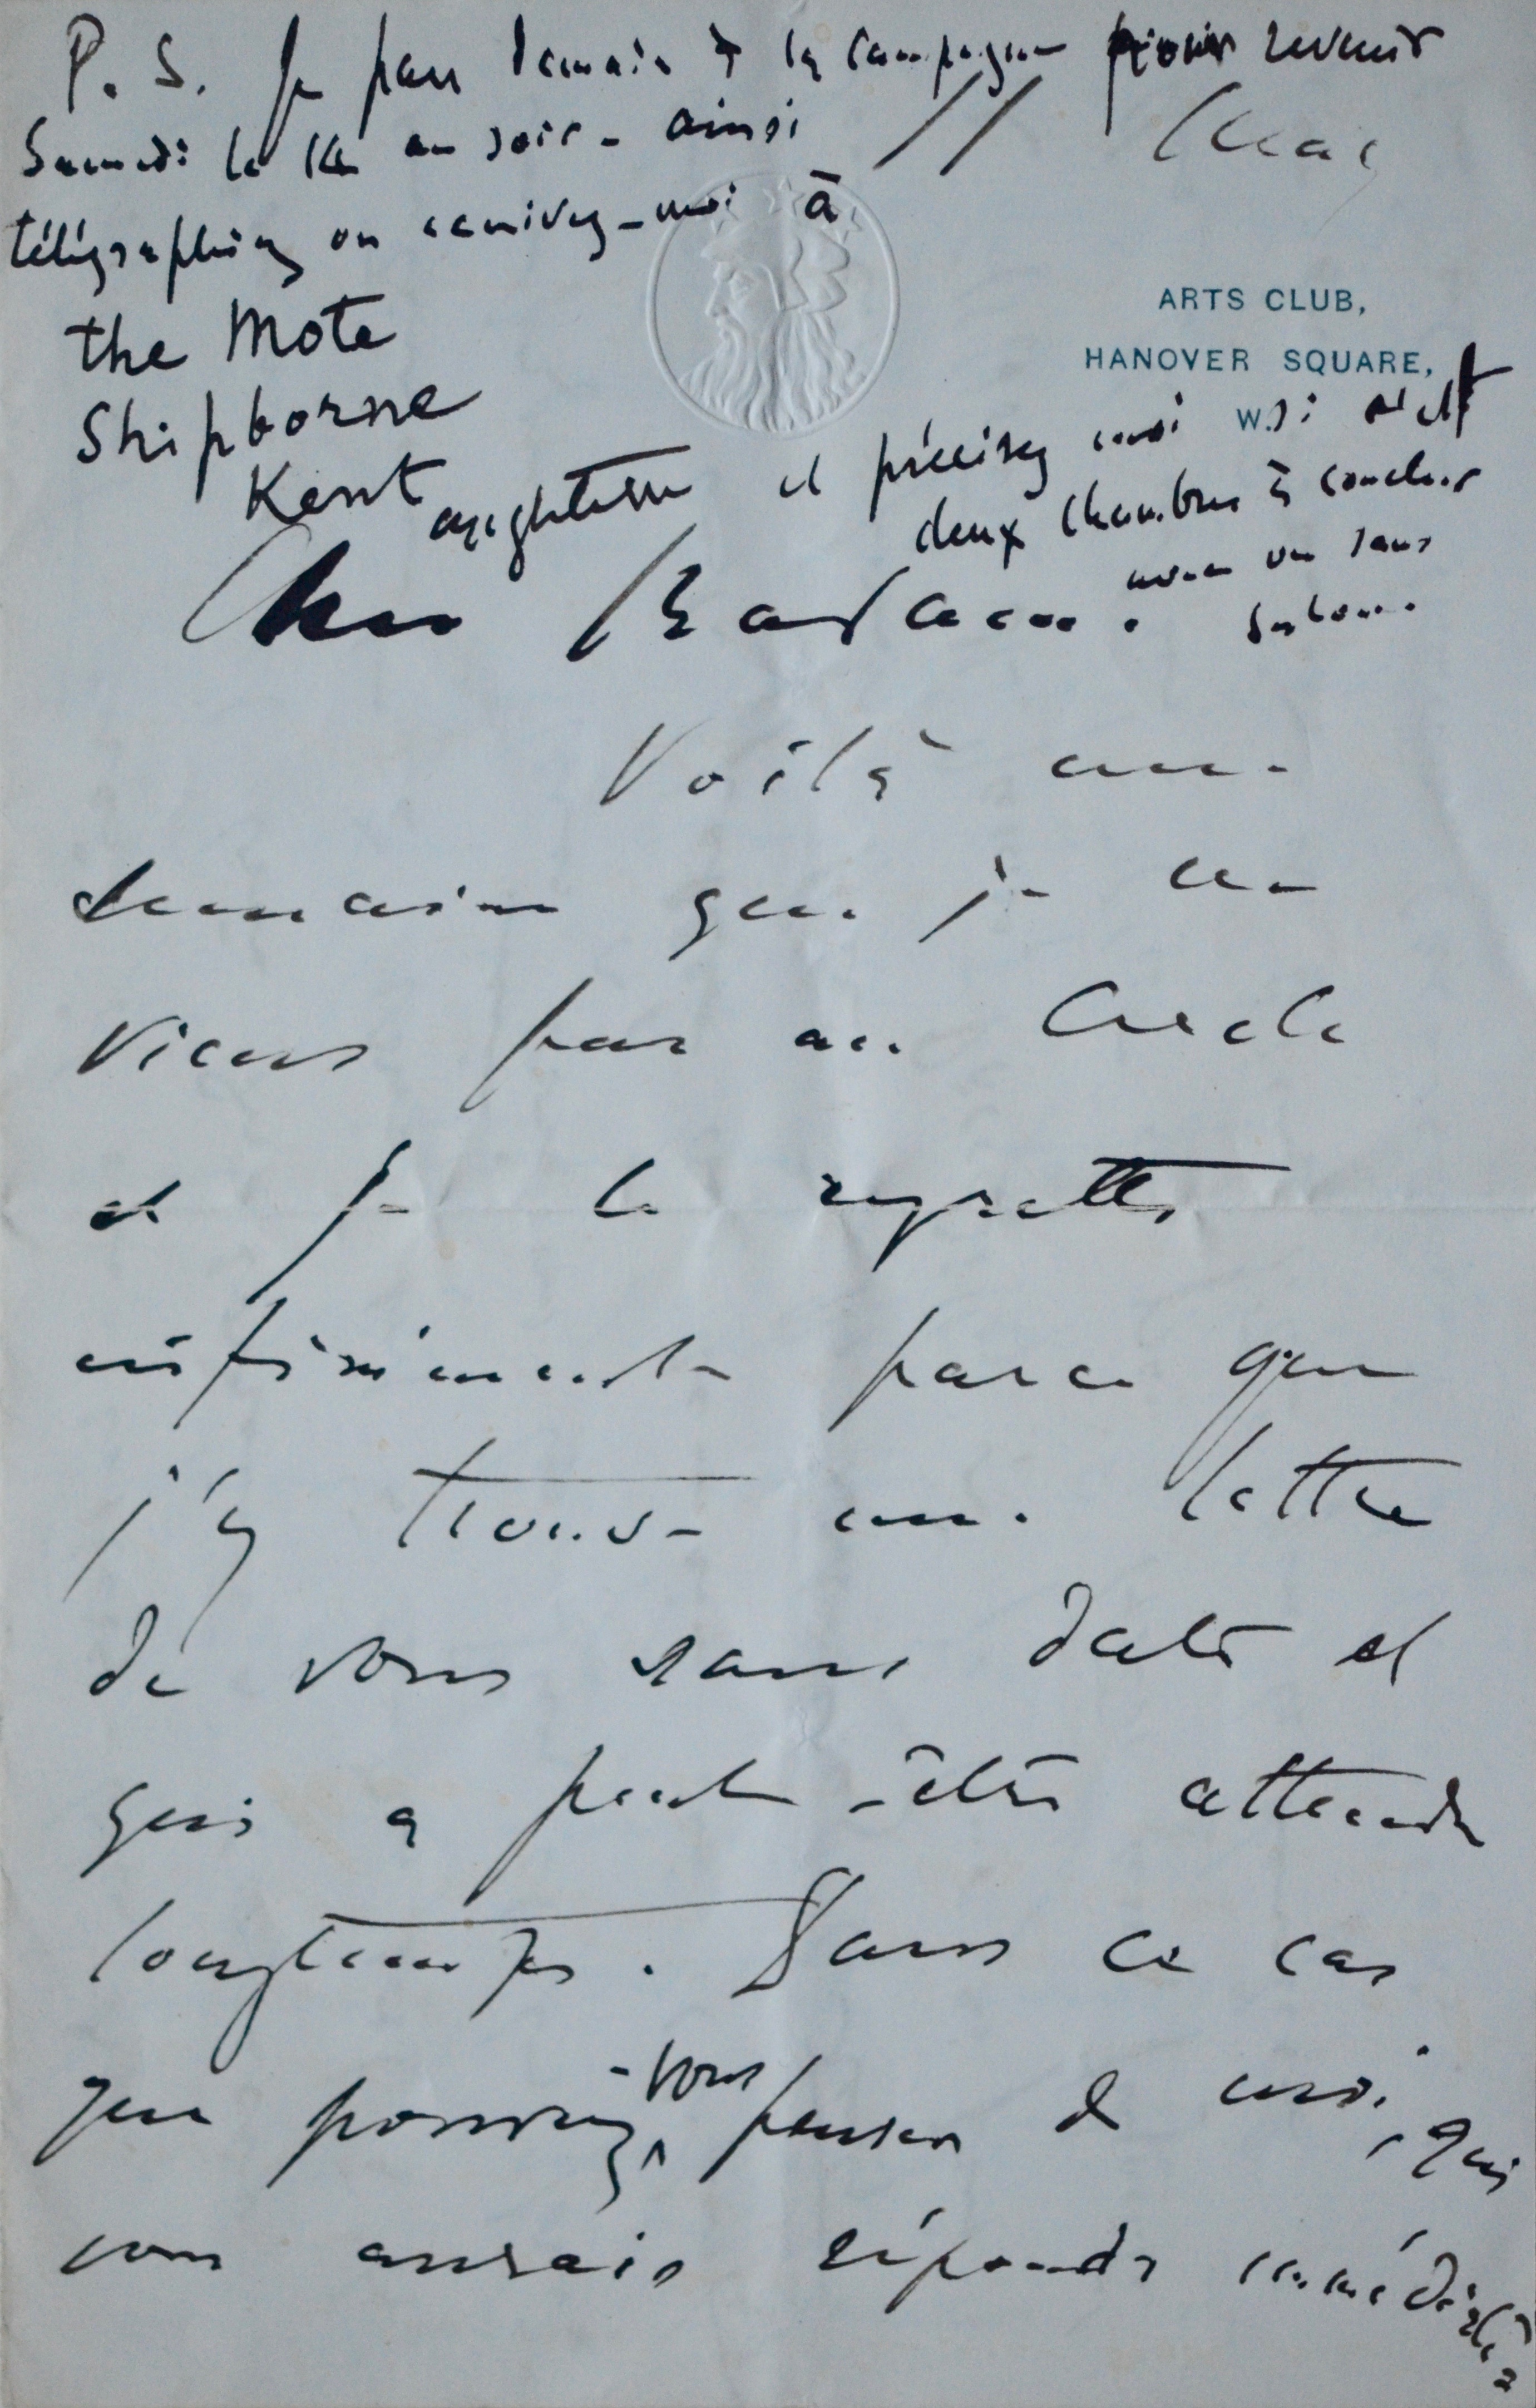 P. S. Je pars demain à la campagne pour revenir
Samedi le 14 au soir - ainsi
télégraphiez ou écrivez-moi à
the Mote
Shipborne
Kent
angleterre et précisez moi si c'est
deux chambres à coucher
avec ou sans
salon.
11 Mai
ARTS CLUB,
HANOVER SQUARE,
W.
Cher Madame.
Voilà une
semaine que je ne
viens pas au Cercle
et je le regrette
infiniment parce que
j'y trouve une lettre
de vous sans date et
qui a peut-être attendu
longtemps. Dans ce cas
que pouviez-vous penser de moi, qui
vous aurais répondu immédiate